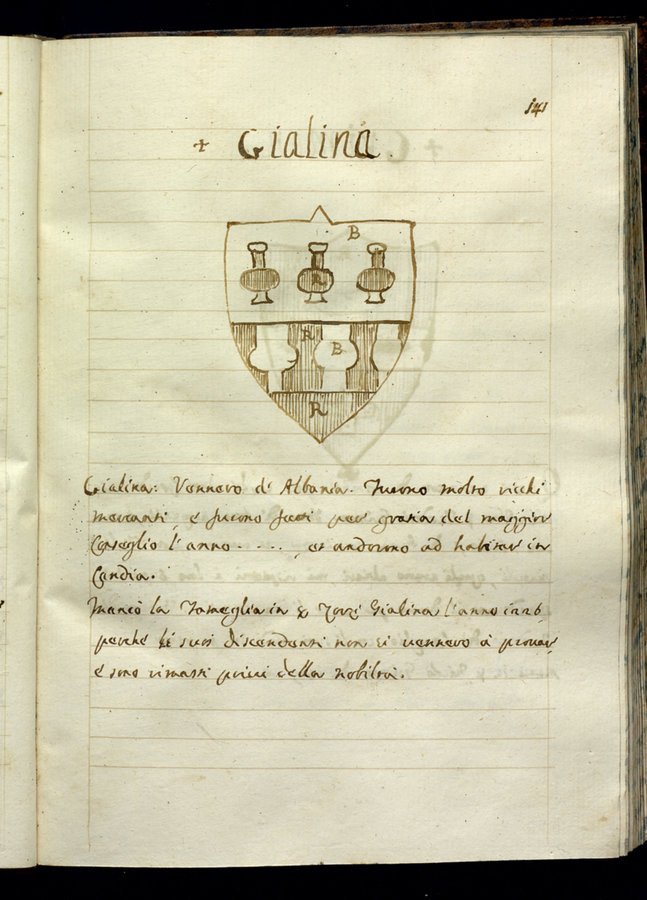 141
+ Gialina.
B
R
R
B
R
Gialina: Vennero di Albania. Furono molto ricchi
mercanti, e furono fatti per gratia del maggior
Conseglio l'anno . . . . , et andorono ad habitar in
Candia.
Mancò la Fameglia in Zorzi Gialina l'anno
perche li suoi discendenti non si vennero à provar,
e sono rimasti privi della Nobiltà.